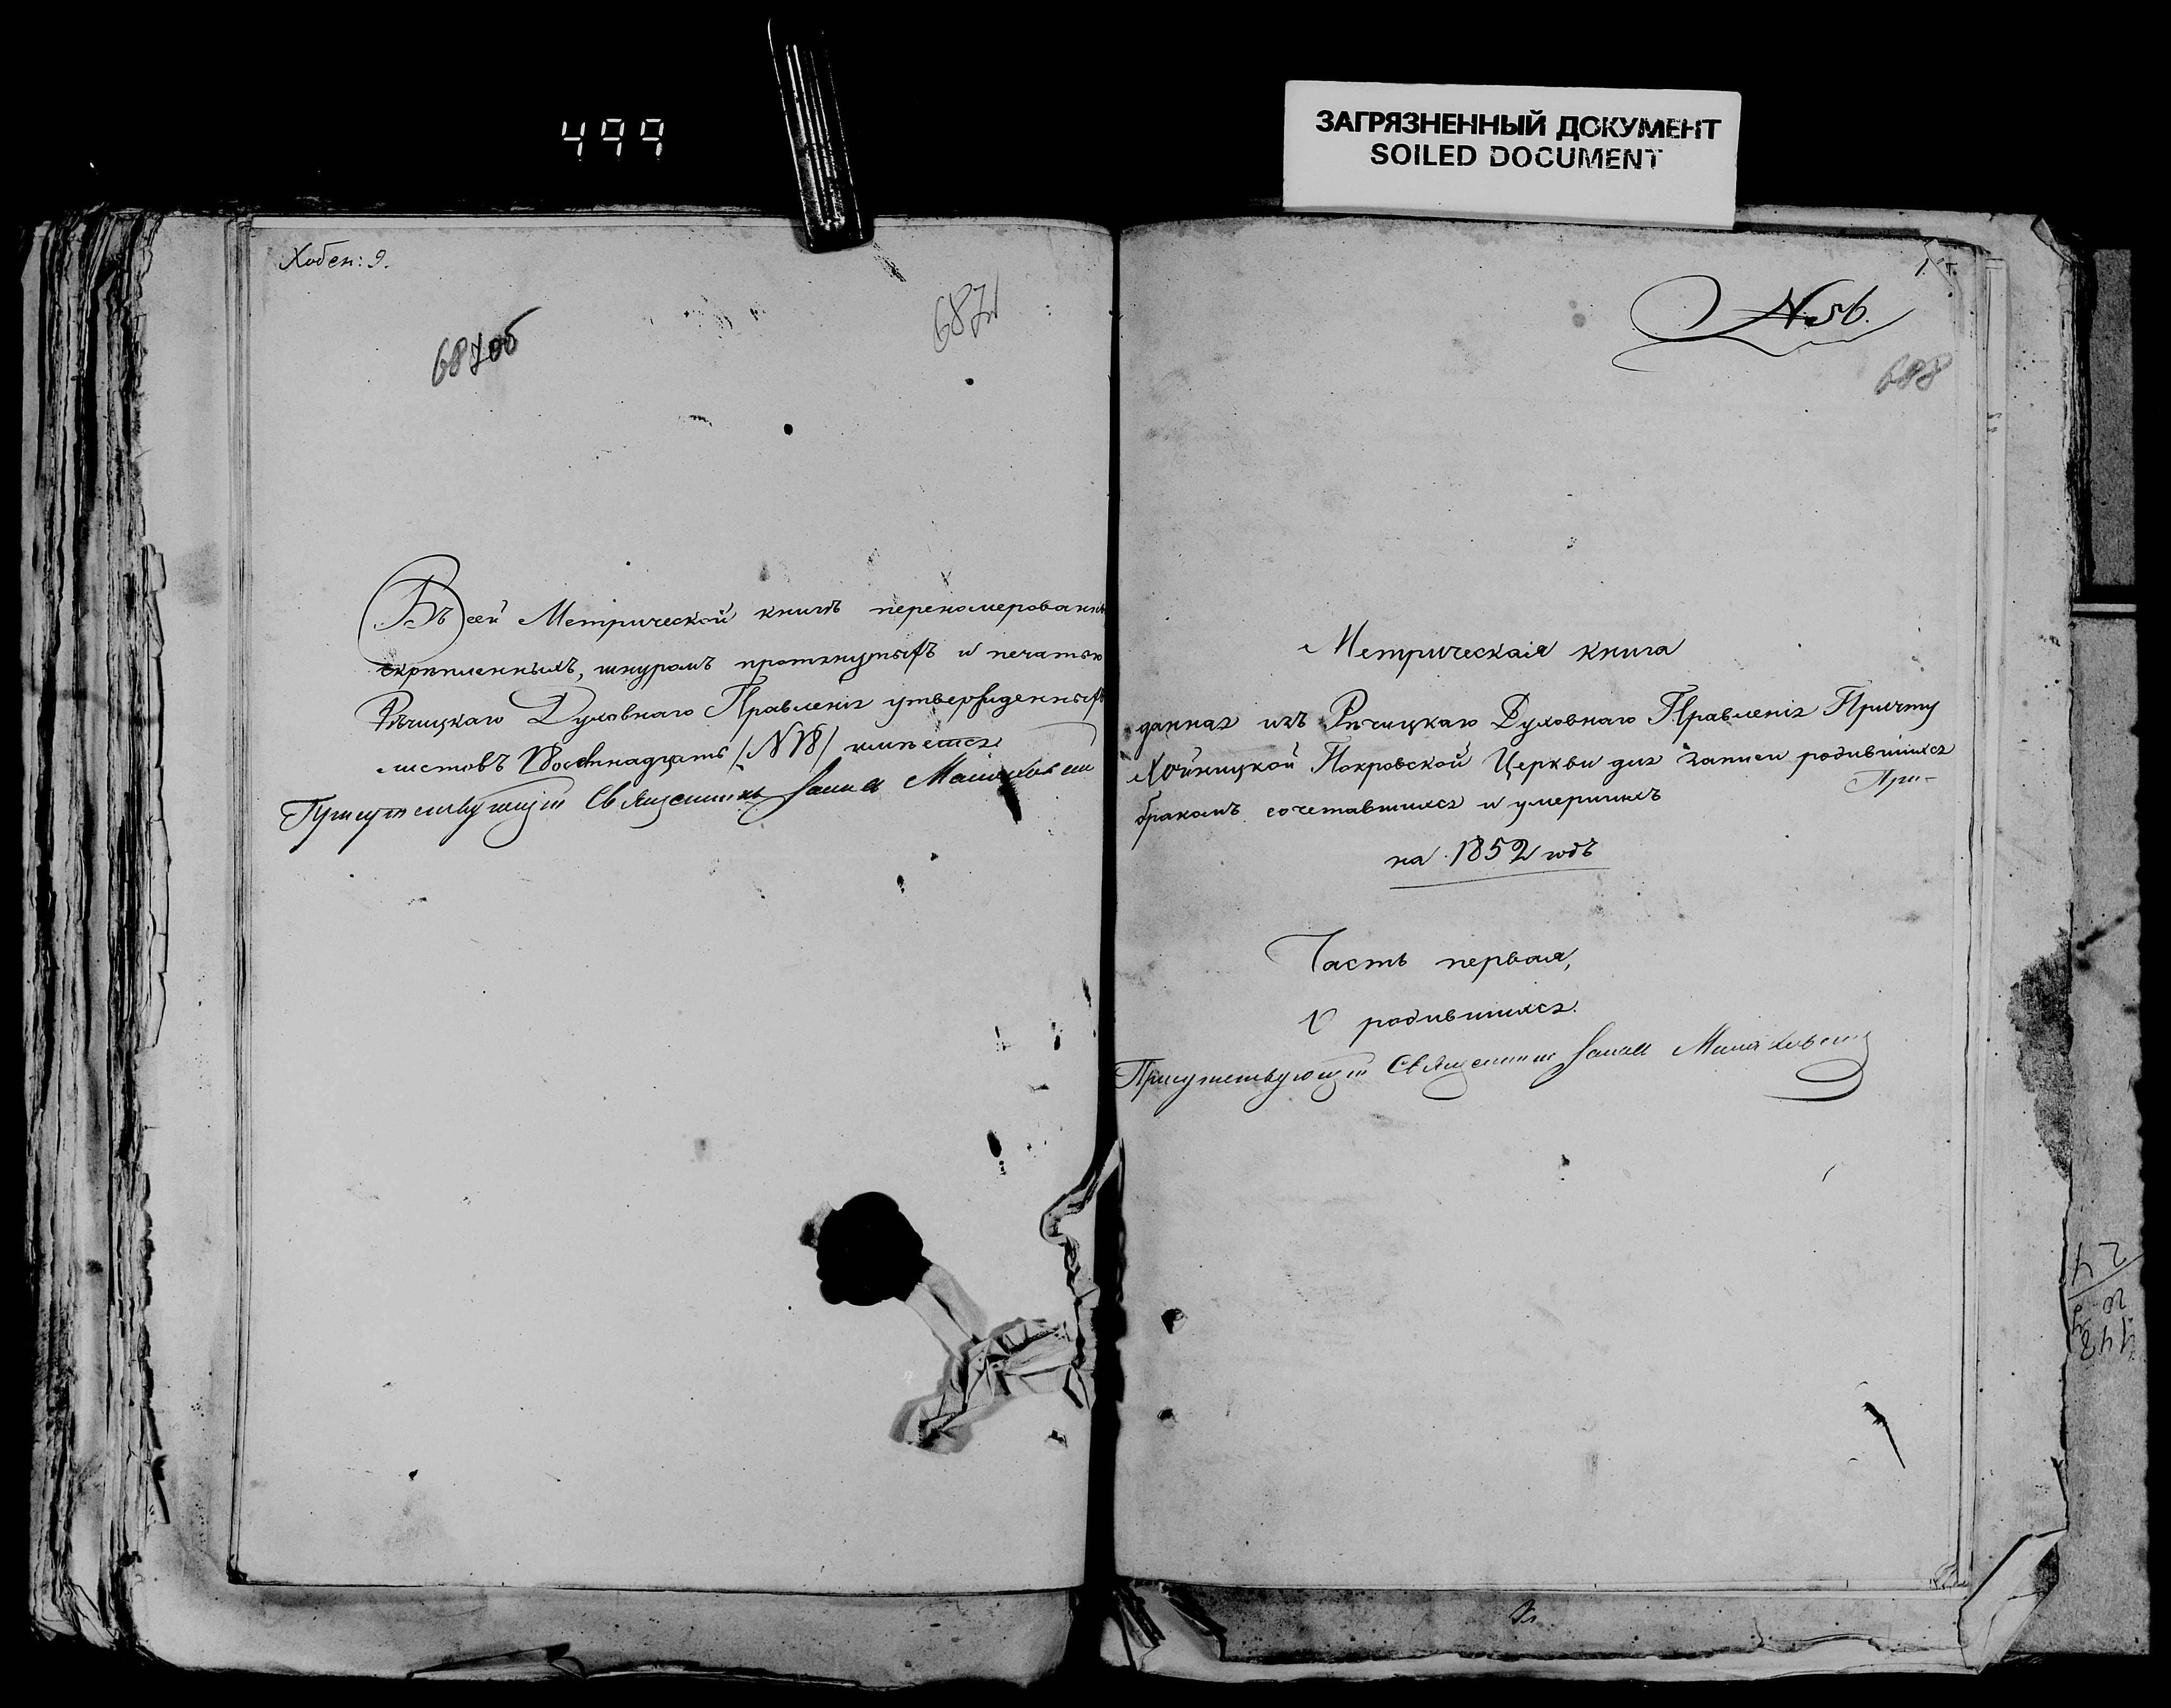 499
ЗАГРЯЗНЕННЫЙ ДОКУМЕНТ
SOILED DOCUMENT
Хобен: 9.
687об
687
Въ сей Метрической книгѣ перекомерованн
скрѣпленныхъ, шнуромъ протянутыхъ и печатью
Рѣчицкаго Духовнаго Правленія утвержденныхъ
листовъ Восѣмнадцать /№18/ имѣется
Присутствующій Священникъ
1.
№ 56.
688
Метрическая книга
данная изъ Рѣчицкаго Духовнаго Правленія Причту
Хойницкой Покровской Церкви для записи родившихся
При-
бракомъ сочетавшихся и умершихъ
на 1852 годъ
Часть первая,
О родившихся.
Присутствующій Священникъ